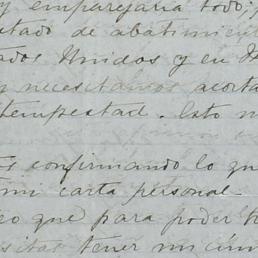 y emparejaria todo;
stado de abatimient
ados Unidos y en M
y necesitamos acorta
tempestad. Esto n
es confirmando lo qu
mi carta personal
ro que para poder h
esitas tener mi